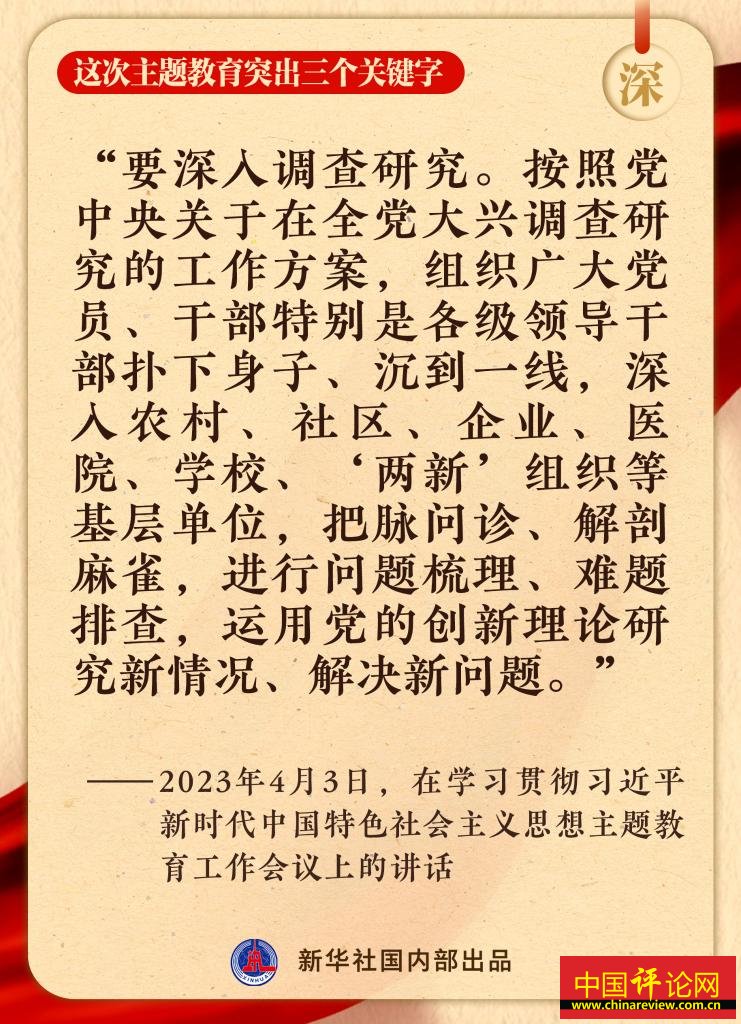 这次主题教育突出三个关键字
深
“要深入调查研究。按照党
中央关于在全党大兴调查研
究的工作方案，组织广大党
员、干部特别是各级领导干
部扑下身子、沉到一线，深
入农村、社区、企业、医
院、学校、‘两新’组织等
基层单位，把脉问诊、解剖
麻雀，进行问题梳理、难题
排查，运用党的创新理论研
究新情况、解决新问题。”
——2023年4月3日，在学习贯彻习近平
新时代中国特色社会主义思想主题教
育工作会议上的讲话
XINHUA
新华社国内部出品
中国评论网
www.chinareview.com.cn